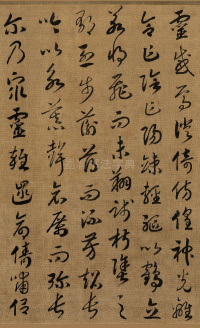 靈感焉徙倚傍徨神光離
合乍陰乍陽竦輕軀以鶴立
若將飛而未翔踐椒塗之
郁烈步蘅薄而流芳超長
吟以永慕聲哀厲而彌長
尔乃眾靈雜遝命儔嘯侣